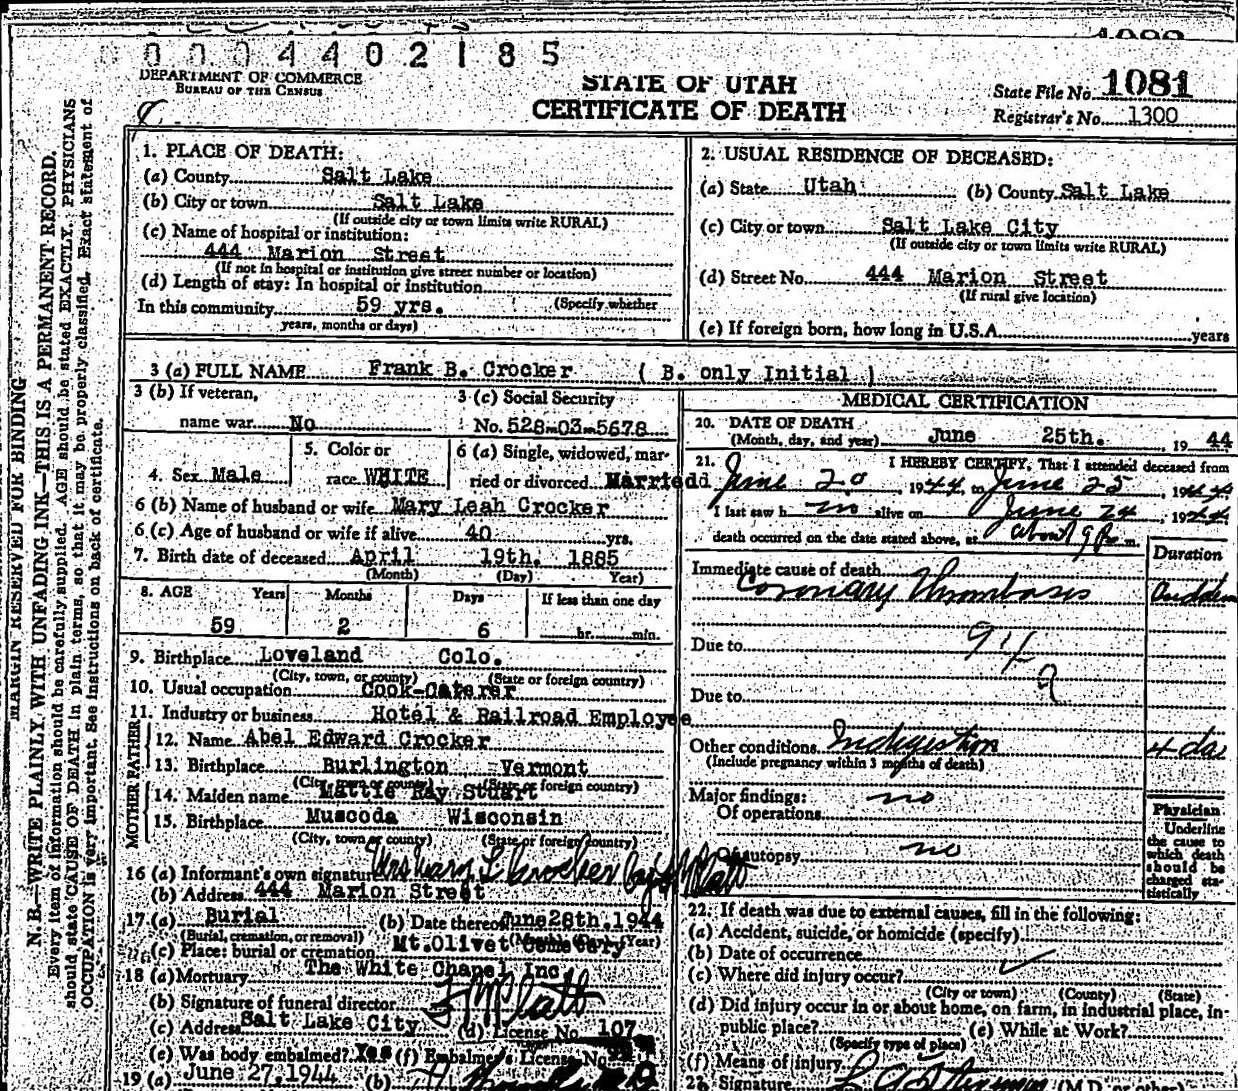 0004402185
DEPARTMENT OF COMMERCE
BUREAU OF THE CENSUS
STATE OF UTAH
CERTIFICATE OF DEATH
State File No. 1081
Registrar's No. 1300
MARGIN RESERVED FOR BINDING
N. B.—WRITE PLAINLY, WITH UNFADING INK—THIS IS A PERMANENT RECORD.
Every item of information should be carefully supplied. AGE should be stated EXACTLY. PHYSICIANS
should state CAUSE OF DEATH in plain terms, so that it may be properly classified. Exact statement of
OCCUPATION is very important. See instructions on back of certificate.
1. PLACE OF DEATH:
(a) County Salt Lake
(b) City or town Salt Lake
(If outside city or town limits write RURAL)
(c) Name of hospital or institution:
444 Marion Street
(If not in hospital or institution give street number or location)
(d) Length of stay: In hospital or institution
In this community 59 yrs. (Specify whether
years, months or days)
2. USUAL RESIDENCE OF DECEASED:
(a) State Utah (b) County Salt Lake
(c) City or town Salt Lake City
(If outside city or town limits write RURAL)
(d) Street No. 444 Marion Street
(If rural give location)
(e) If foreign born, how long in U.S.A. years
3 (a) FULL NAME Frank B. Crocker ( B. only Initial )
3 (b) If veteran,
name war No
3 (c) Social Security
No. 528-03-5678
4. Sex Male
5. Color or
race WHITE
6 (a) Single, widowed, mar-
ried or divorced Married
6 (b) Name of husband or wife Mary Leah Crocker
6 (c) Age of husband or wife if alive 40 yrs.
7. Birth date of deceased April 19th. 1885
(Month) (Day) Year)
8. AGE Years Months Days If less than one day
59 2 6 hr. min.
9. Birthplace Loveland Colo.
(City, town, or county) (State or foreign country)
10. Usual occupation Cook-Caterer
11. Industry or business Hotel & Railroad Employee
FATHER
12. Name Abel Edward Crocker
13. Birthplace Burlington Vermont
(City, town or county) (State or foreign country)
MOTHER
14. Maiden name Mattie Ray Stuart
15. Birthplace Muscoda Wisconsin
(City, town or county) (State or foreign country)
16 (a) Informant's own signature Mrs Mary L Crocker by J M Platt
(b) Address 444 Marion Street
17 (a) Burial (b) Date thereof June 28th. 1944
(Burial, cremation, or removal) (Month) (Day) (Year)
(c) Place: burial or cremation Mt. Olivet Cemetery
18 (a) Mortuary The White Chapel Inc
(b) Signature of funeral director J M Platt
(c) Address Salt Lake City (d) License No. 107
(e) Was body embalmed? Yes (f) Embalmer's License No.
19 (a) June 27, 1944 (b)
MEDICAL CERTIFICATION
20. DATE OF DEATH
(Month, day, and year) June 25th. 1944
21. I HEREBY CERTIFY, That I attended deceased from
June 20, 1944, to June 25, 1944
I last saw h im alive on June 24, 1944
death occurred on the date stated above, at about 9 P. m.
Immediate cause of death Duration
Coronary Thrombosis Sudden
Due to 94
Due to
Other conditions Indigestion 4 da
(Include pregnancy within 3 months of death)
Major findings:
Of operations no
Of autopsy no
Physician
Underline
the cause to
which death
should be
charged sta-
tistically
22. If death was due to external causes, fill in the following:
(a) Accident, suicide, or homicide (specify)
(b) Date of occurrence
(c) Where did injury occur?
(City or town) (County) (State)
(d) Did injury occur in or about home, on farm, in industrial place, in-
public place? (e) While at Work?
(Specify type of place)
(f) Means of injury
Signature